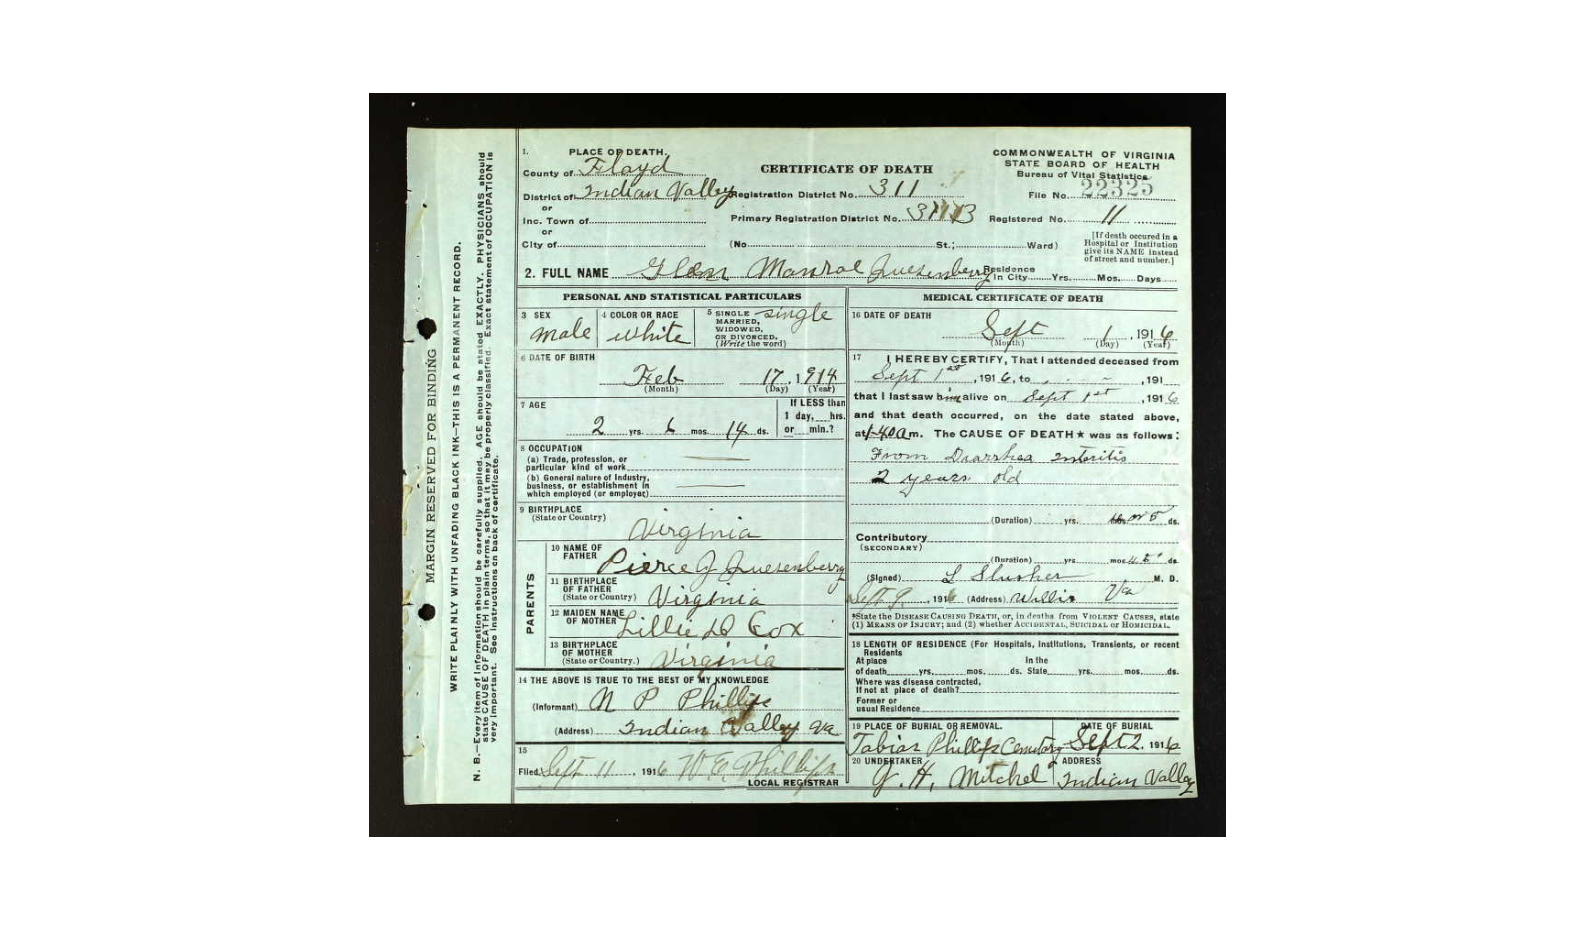 MARGIN RESERVED FOR BINDING
WRITE PLAINLY WITH UNFADING BLACK INK—THIS IS A PERMANENT RECORD.
N. B.—Every item of information should be carefully supplied. AGE should be stated EXACTLY. PHYSICIANS should
state CAUSE OF DEATH in plain terms, so that it may be properly classified. Exact statement of OCCUPATION is
very important. See instructions on back of certificate.
1. PLACE OF DEATH.
County of Floyd
District of Indian Valley
or
Inc. Town of
or
City of
CERTIFICATE OF DEATH
Registration District No. 311
Primary Registration District No.
(No. St.; Ward)
COMMONWEALTH OF VIRGINIA
STATE BOARD OF HEALTH
Bureau of Vital Statistics
File No. 22325
Registered No. 11
[If death occured in a
Hospital or Institution
give its NAME instead
of street and number.]
2. FULL NAME Glen Monroe Quesenberry Residence In City Yrs. Mos. Days
PERSONAL AND STATISTICAL PARTICULARS
3 SEX male
4 COLOR OR RACE white
5 SINGLE MARRIED, WIDOWED, OR DIVORCED. (Write the word) single
6 DATE OF BIRTH
Feb 17, 1914
(Month) (Day) (Year)
7 AGE
2 yrs. 6 mos. 14 ds.
If LESS than
1 day, hrs.
or min.?
8 OCCUPATION
(a) Trade, profession, or
particular kind of work
(b) General nature of Industry,
business, or establishment in
which employed (or employer)
9 BIRTHPLACE
(State or Country)
Virginia
PARENTS
10 NAME OF FATHER Pierce J Quesenberry
11 BIRTHPLACE OF FATHER (State or Country) Virginia
12 MAIDEN NAME OF MOTHER Lillie D Cox
13 BIRTHPLACE OF MOTHER (State or Country.) Virginia
14 THE ABOVE IS TRUE TO THE BEST OF MY KNOWLEDGE
(Informant) N P Phillips
(Address) Indian Valley Va
15
Filed Sept 11, 1916 W E Phillips
LOCAL REGISTRAR
MEDICAL CERTIFICATE OF DEATH
16 DATE OF DEATH
Sept 1, 1916
(Month) (Day) (Year)
17 I HEREBY CERTIFY, That I attended deceased from
Sept 1st, 1916, to , 191
that I last saw him alive on Sept 1st, 1916
and that death occurred, on the date stated above,
at 1-40 a m. The CAUSE OF DEATH★ was as follows:
From Diarrhea Enteritis
2 years old
(Duration) yrs. ds.
Contributory
(SECONDARY)
(Duration) yrs mos ds.
(Signed) L Slusher M. D.
Sept 9, 1916 (Address) Willis Va
*State the DISEASE CAUSING DEATH, or, in deaths from VIOLENT CAUSES, state
(1) MEANS OF INJURY; and (2) whether ACCIDENTAL, SUICIDAL or HOMICIDAL.
18 LENGTH OF RESIDENCE (For Hospitals, Institutions, Transients, or recent
Residents
At place In the
of death yrs. mos. ds. State yrs. mos. ds.
Where was disease contracted,
If not at place of death?
Former or
usual Residence
19 PLACE OF BURIAL OR REMOVAL.
Tobias Phillips Cemetery
DATE OF BURIAL
Sept 2. 1916
20 UNDERTAKER
H. Mitchel
ADDRESS
Indian Valley